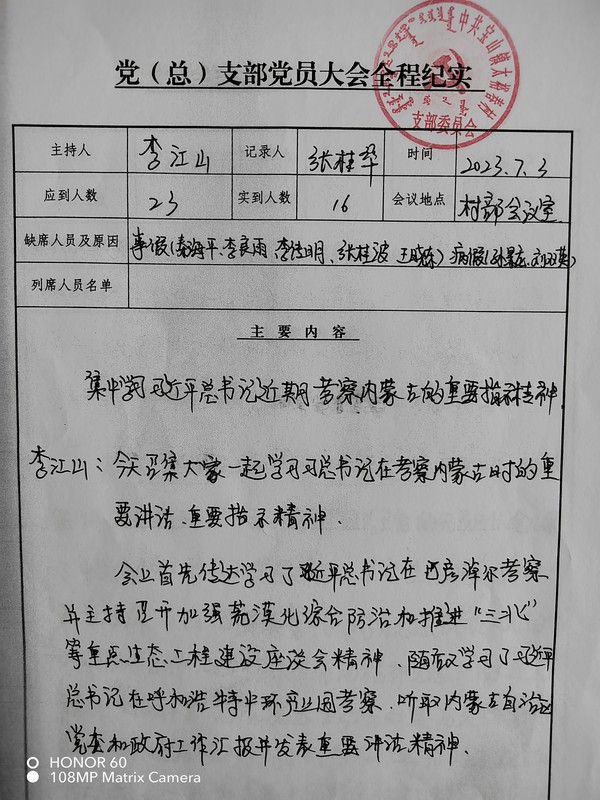 党（总）支部党员大会全程纪实
中共宝山镇太
支部委员会
主持人 李江山 记录人 张桂华 时间 2023.7.3
应到人数 23 实到人数 16 会议地点 村部会议室
缺席人员及原因 事假(秦海平、李良雨、李传明、张桂波 王晓栋) 病假(
列席人员名单
主要内容
集中学习习近平总书记近期考察内蒙古的重要指示精神
李江山：今天召集大家一起学习习总书记在考察内蒙古时的重
要讲话、重要指示精神.
会上首先传达学习了习近平总书记在巴彦淖尔考察
并主持召开加强荒漠化综合防治和推进“三北”
等重点生态工程建设座谈会精神、随后又学习了习近平
总书记在呼和浩特中环产业园考察、听取内蒙古自治区
党委和政府工作汇报并发表重要讲话精神.
HONOR 60
108MP Matrix Camera